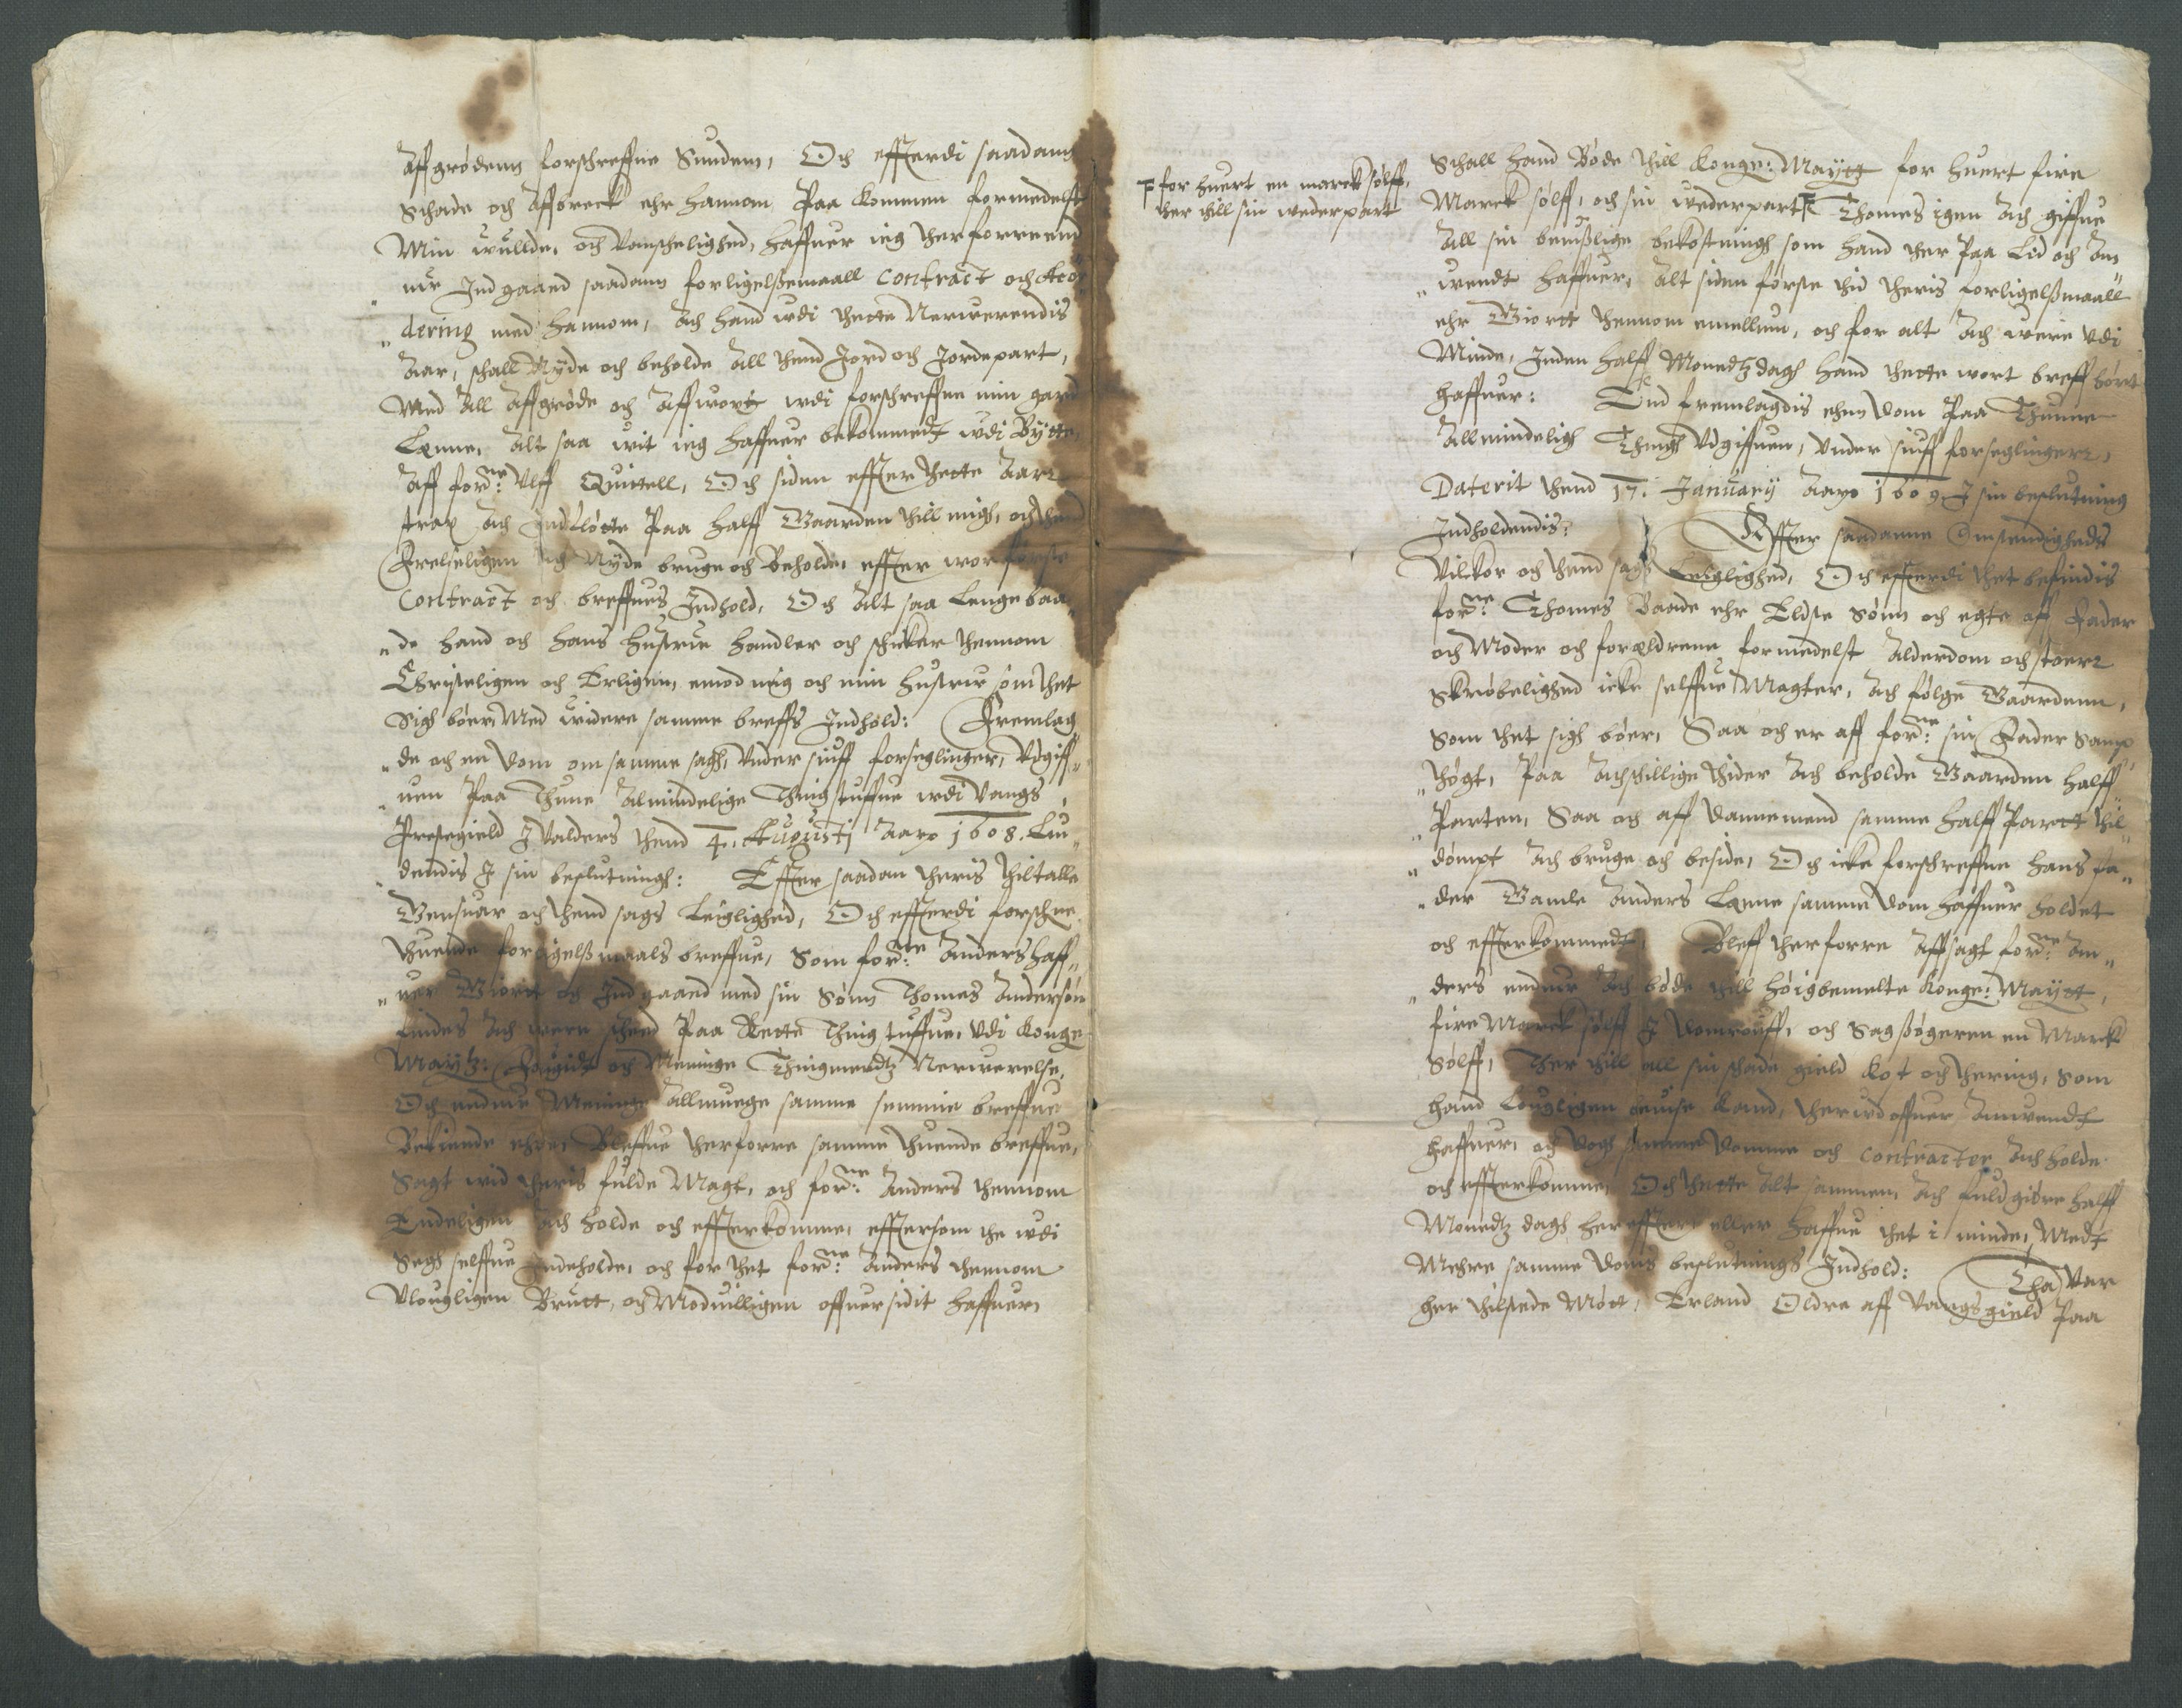 Aff grødenn forschreffne Sunden, Och effterdi saadann
Schade och Affbreck ehr hannom Paa kommen formedelst
Min wullde, och Vanschelighed, haffuer ieg ther forre end
nu Ind gaaed saadann forligelßemaall Contract och Acor
" dering med hannom, Ath hand wdi thette Neruerendis
Aar, schall Nyde och beholde All thend Jord och Jordepart,
Med All Affgrøde och Affwoxt wdi forschreffne min gard
Lønne, Alt saa wit ieg haffuer bekommedt wdi Bytte,
Aff forne: Ulff Quitell, Och siden effter thette Aar
strax Ath Indfløtte Paa halff Gaarden thill migh, och thend
Frelseligen Ath Nyde bruge och Beholde, effter wor første
Contract och breffues Indhold, Och Alt saa Lenge baa
" de hand och hans hustrue handler och schicker thennom
Christeligen och Erligen, emod mig och min hustrue som thet
Sigh bøer, Med widere samme breffs Indhold: Fremlag
" de och en Dom om samme sagh, Vnder siuff forseglinger, Vdgiff"
" uen Paa Thune Almindelige Thing stuffue wdi Vangs
Prestegield J Valders thend 4. Augusti Aaro 1608. Liu"
" dendis J sin beslutningh: Effter saadan theris thiltalle
Gensuar och thend sags Leiglighed, Och effterdi forschne
thuende forligelß maals breffue, Som forne: Anders haff"
" uer Giort og Ind gaaed med sin Sønn Thomes Andersøn
findes Ath were scheed Paa Rette Thing stuffue, Vdi Konge
Maytz: Fougidt og Meninge Thingmendtz Neruerelse,
Och endnu Meninge Allmuege samme semmie breffue
Bekiende ehre, Bleffue therforre samme thuende breffue,
Sagt wid theris fulde Magt, och forne: Anders thennom
Endeligen Ath holde och effterkomme, efftersom the wdi
Segh selffue Indeholde, och for thet forne: Anders thennom
Vlougligen Brutt, og Modwilligen offuersidit haffuer,
F for huert en marck sølff,
ther thill sin wederpart
Schall hand Bøde thill Konge: Maytt for huert fire
Marck sølff, och sin wederpart F Thomes igen Ath giffue
All sin beuißlige bekostningh som hand ther Paa Lid och An
" wendt haffuer, Alt siden første thid theris forligelßmaall
ehr Giort thennom emellum, och for alt Ath were Vdi
Minde, Inden halff Monedtz dagh hand thette wort breff hørt
haffuer: End fremlagdis ehnn Dom Paa Thunne
Allmindeligh Thingh Vdgiffuen, Vnder siuff forseglinger,
Daterit thend 17. January Aaro 1609 J sin beslutning
Indholdendis: Effter saadanne Omstendigheds
Vilckor och thend sags Leiglighed, Och effterdi thet befindis
forne: Thomes Baade ehr Eldste Sønn och egte aff Fader
och Moder och forældrene formedelst Alderdom och stoer
Skrøbelighed icke selffue Magter, Ath følge Gaarden,
Som thet sigh bøer, Saa och er aff forne: sin Fader Samp"
" thøgt, Paa Athschillige thider Ath beholde Gaarden halff
" Parten, Saa och aff Dannemend samme halff Partt thil"
" dømpt Ath bruge och beside, Och icke forschreffne hans fa"
" der Gamle Anders Lønne samme Dom haffuer holdet
och effterkommedt, Bleff therforre Affsagt forne: An"
" ders endnu Ath bøde thill høigbemelte Konge: Maytt,
fire Marck sølff J Domrouff, och Sagsøgeren en Marck
Sølff, Ther thill all sin schade gield Kost och thering, som
hand Lougligen beuise kand, ther wd offuer Anwendt
haffuer, och dogh samme Domme och Contracter Ath holde
och effterkomme, Och thette Alt sammen, Ath fuldgiøre halff
Monedtz dagh her effter, eller haffue thet i minde, Medt
Mehre samme Doms beslutnings Indhold: Tha Var
her thilstede Møtt, Erland Oldre aff Vangs gield Paa